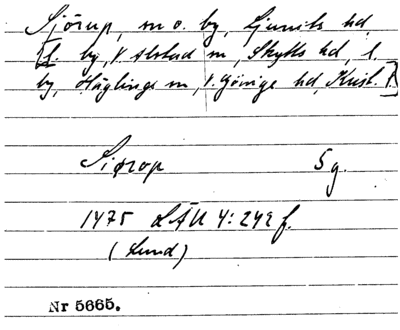 Sjörup, m o. by, Ljunits hd,
[l. by, V. Alstad m, Skytts hd, l.
by, Häglinge m, V. Göinge hd, Krist. l.]
Siørop 5 g.
1475 LÄU 4:242 f.
(Lund)
Nr 5665.